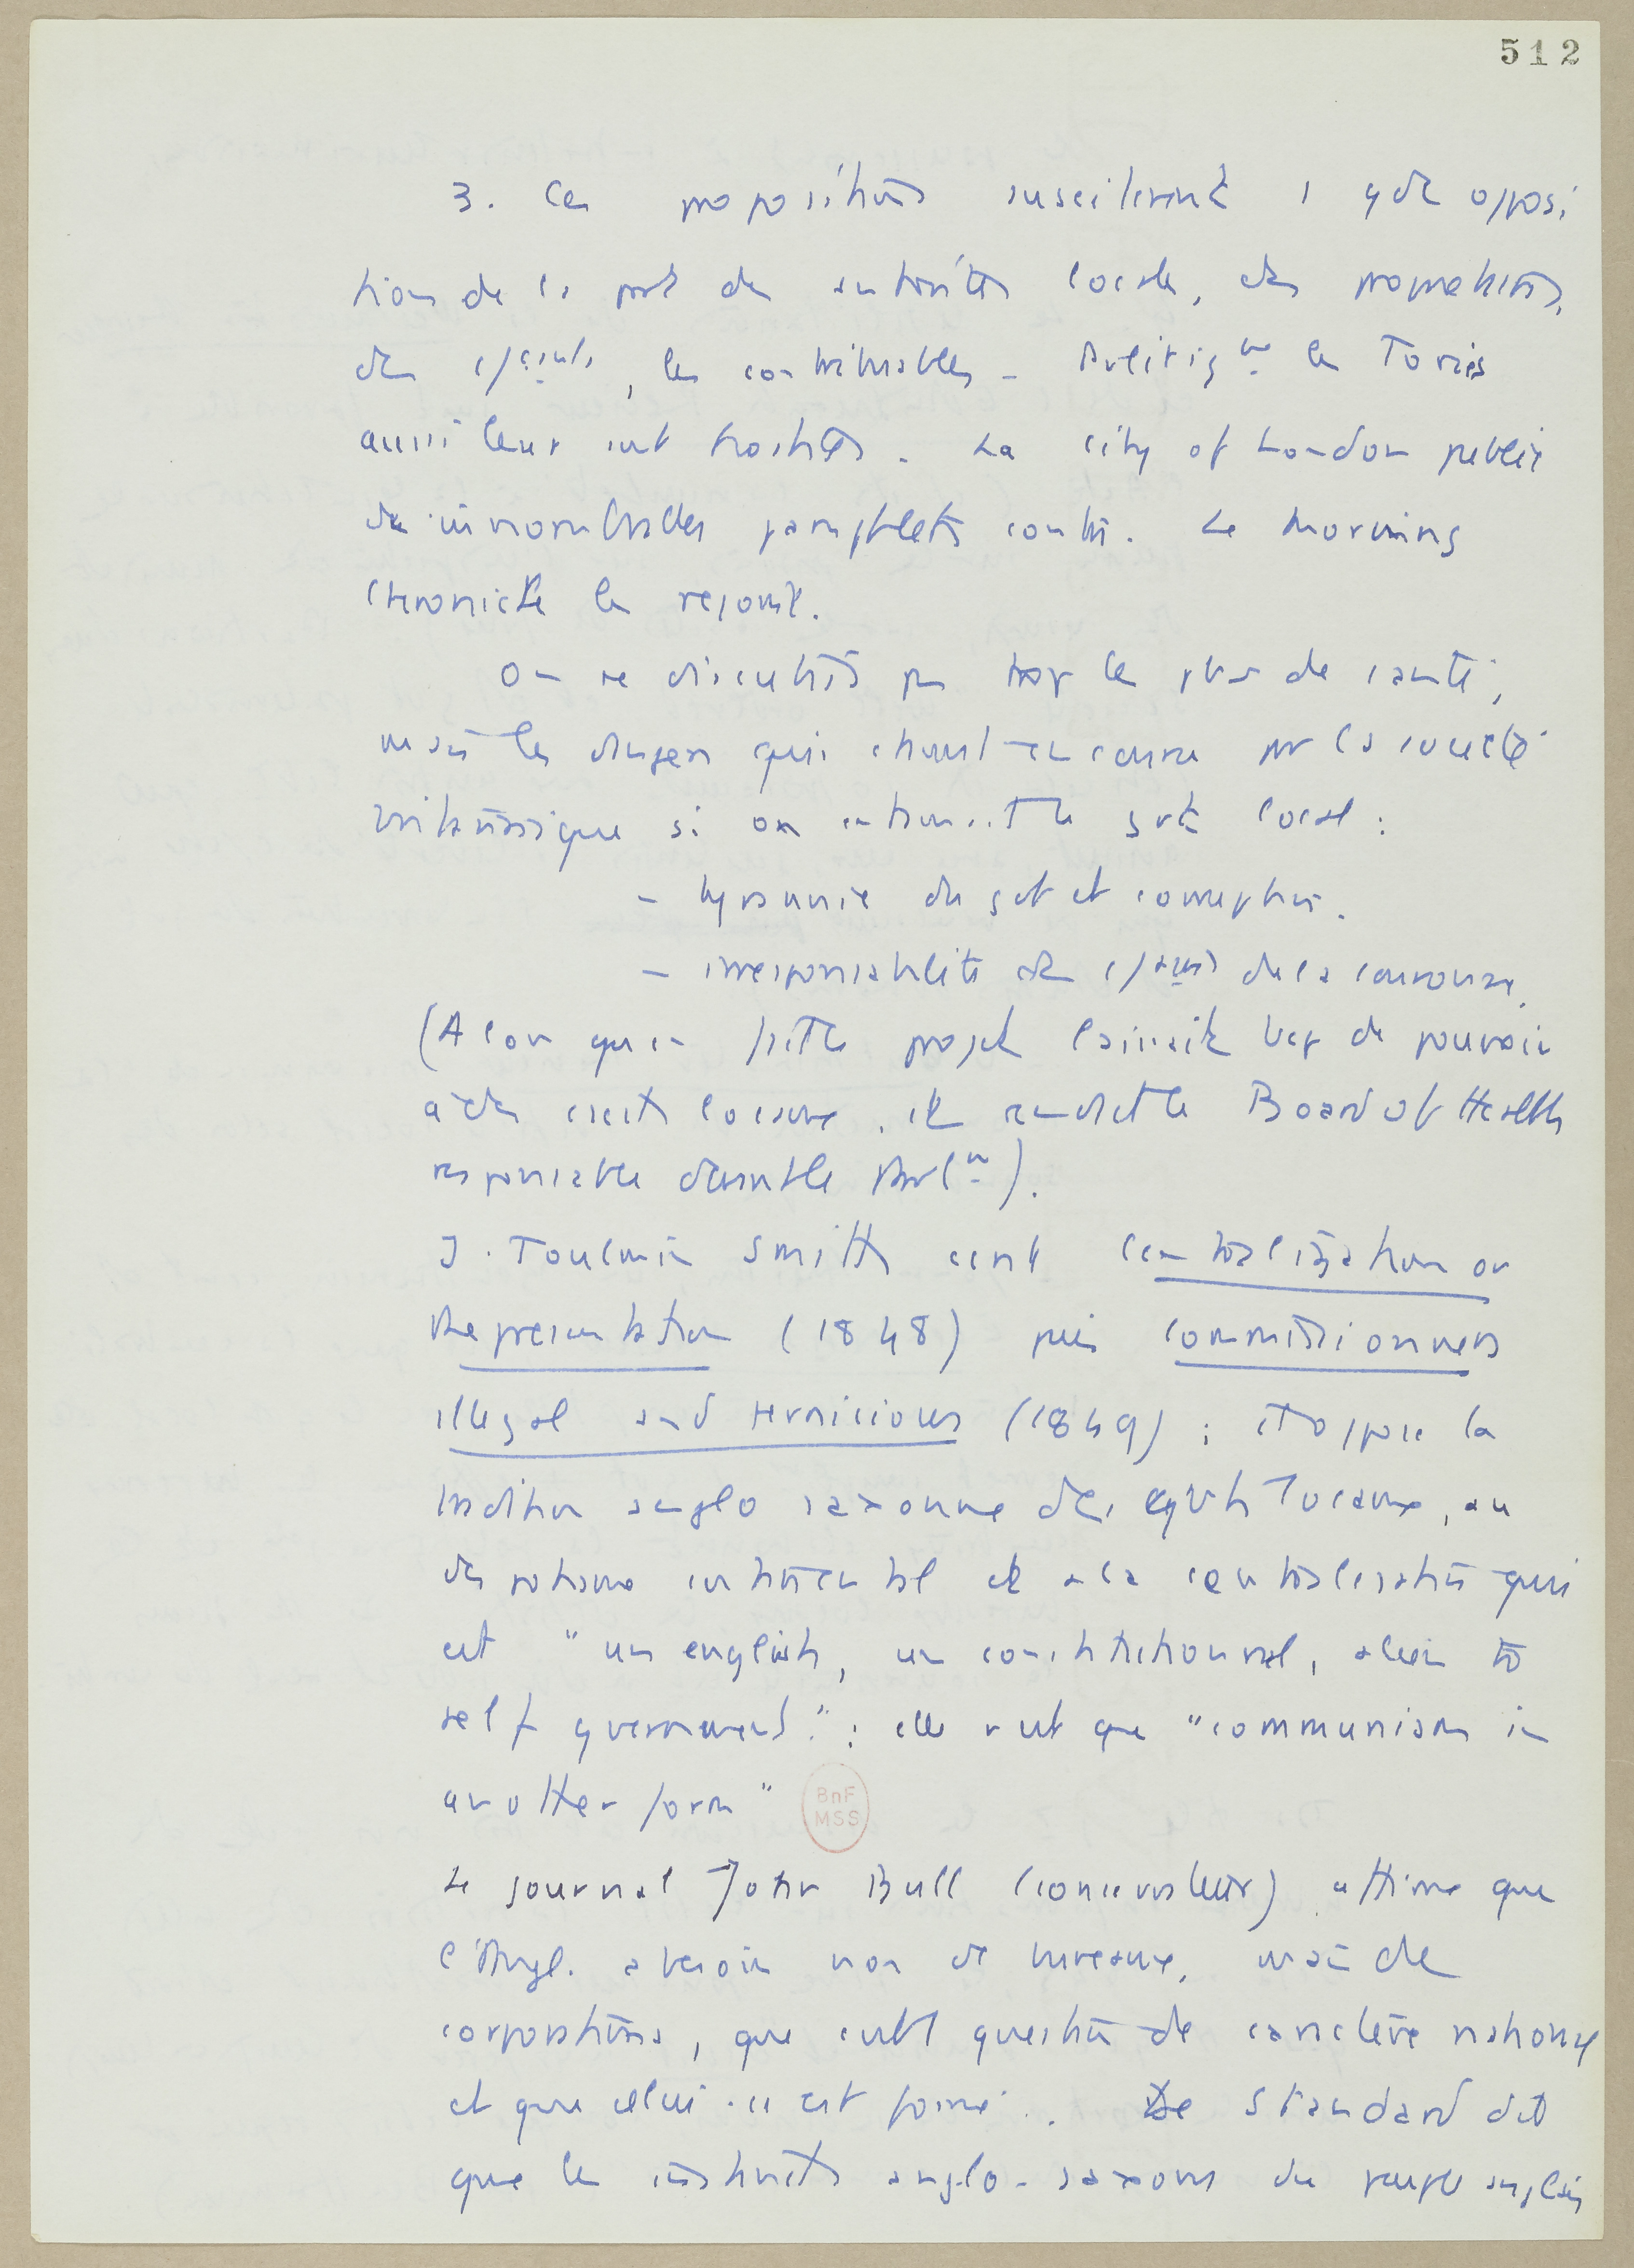 512
3. Ces propositions susciterent 1 gde opposi
tion de la part des autorités locales, des propriétaires,
des , les contribuables - Politiqt les Tories
aussi leur sont hostiles. La City of London publie
de innombrables pamphlets contre. Le Morning
Chronicle les rejoint.
On ne discutait pas trop les plans de santé,
mais les dangers qui étaient en cause pr la société
britannique si on introduit le gvt local :
- tyrannie du gvt et corruption.
- irresponsabilité de de la couronne.
(Alors que projet laissait bcp de pouvoir
à des locaux, et rendait le Board of Health
responsable devant le Parlt).
J. Toulmin Smith écrit Centralization or
Representation (1848) puis Commissionners
illegal and pernicious (1849) : il oppose la
tradition anglo saxonne des locaux, au
continental et à la centralisation qui
est "un english, un constitutionnal, alien to
self government" : elle n'est que "communism in
another form"
BnF
MSS
Le journal John Bull (conservateur) affirme que
l'Angl. a besoin non de bureaux, mais de
corporations, que c'est 1 question de caractère national
et que celui-ci est formé. Le Standard dit
que les instincts anglo-saxons du peuple anglais